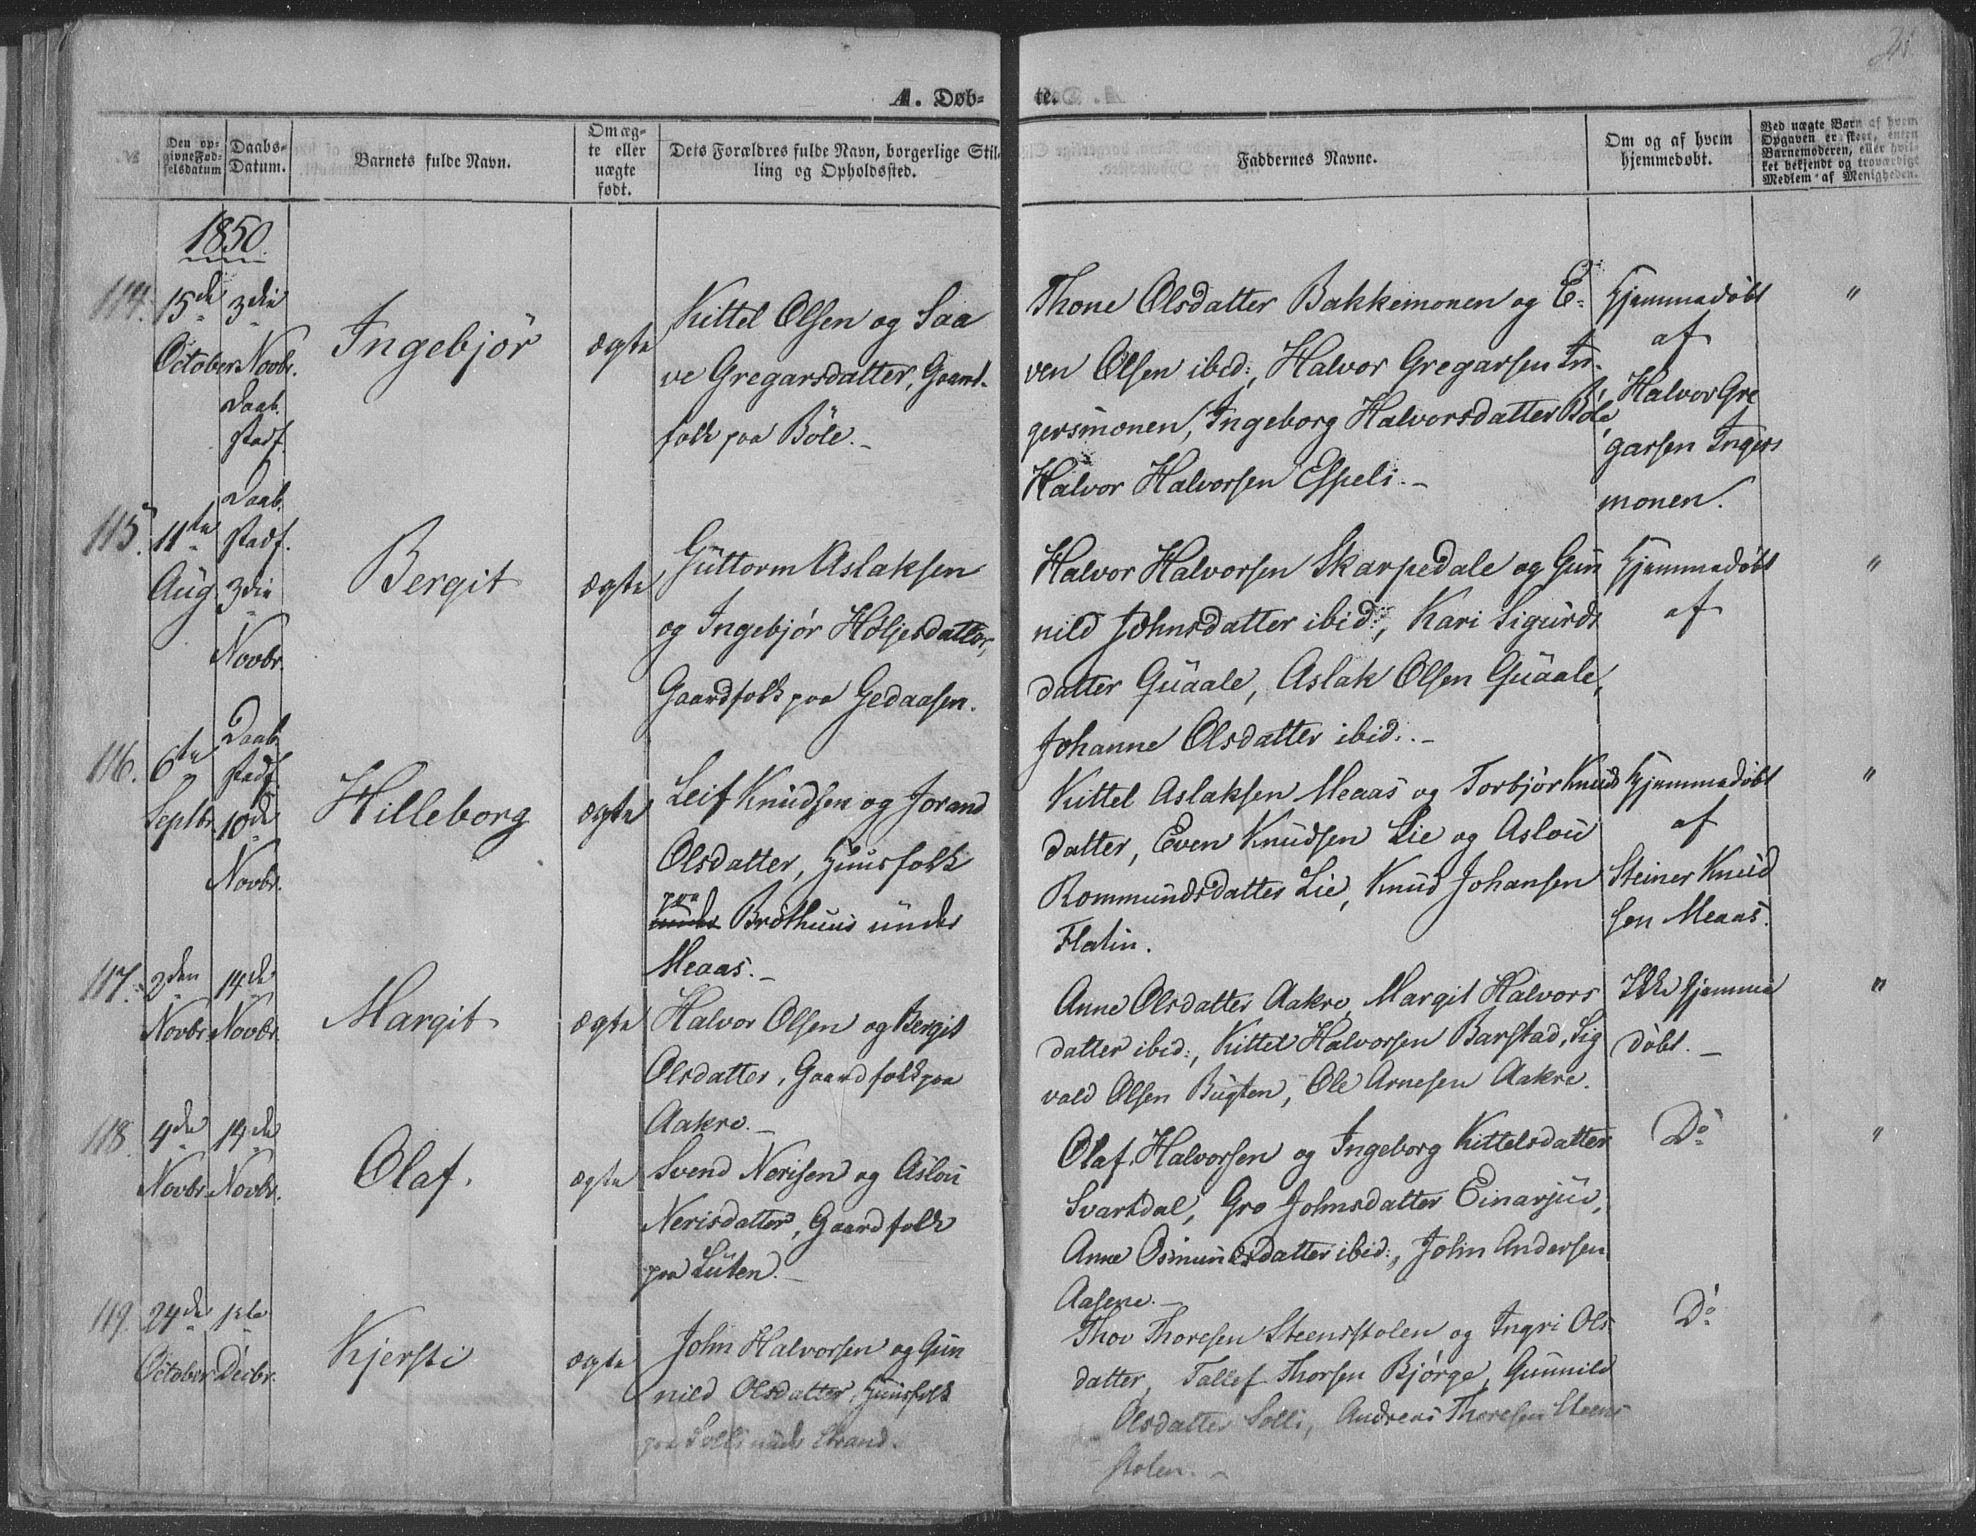 21
A. Døb-
te.
№
Den op-
givne Fød-
selsdatum
Daabs-
Datum.
Barnets fulde Navn.
Om æg-
te eller
uægte
født.
Dets Forældres fulde Navn, borgerlige Stil-
ling og Opholdssted.
Faddernes Navne.
Om og af hvem
hjemmedøbt.
Ved uægte Børn af hvem
Opgaven er skeet, enten
Barnemoderen, eller hvil-
ket bekjendt og troværdigt
Medlem af Menigheden.
1850.
114.
15de
October
3die
Novbr.
Daab.
stadf.
Ingebjör
ægte
Kittel Olsen og Saa
ve Gregarsdatter, Gaard-
folk paa Böle.-
Thone Olsdatter Bakkemonen og E-
ven Olsen ibid:, Halvor Gregarsen In-
gersmonen, Ingeborg Halvorsdatter Böle,
Halvor Halvorsen Espeli.-
Hjemmedöbt
af
Halvor Gre
garsen Ingers
monen.
"
115.
11te
Aug
Daab.
stadf.
3die
Novbr.
Bergit
ægte
Guttorm Aslaksen
og Ingebjör Höljesdatter,
Gaardfolk paa Gedaasen.
Halvor Halvorsen Skarpedale og Gun
nild Johnsdatter ibid:, Kari Sigurds
datter Quaale, Aslak Olsen Quaale,
Johanne Olsdatter ibid:.-
Hjemmedöbt
af
"
116.
6te
Septbr.
Daab.
stadf.
10de
Novbr.
Hilleborg
ægte
Leif Knudsen og Jorand
Olsdatter, Huusfolk
paa
under Bröthuus under
Meaas.-
Kittel Aslaksen Meaas og Torbjör Knuds
datter, Even Knudsen Lie og Aslou
Rommundsdatter Lie, Knud Johansen
Flatin.
Hjemmedöbt
af
Steiner Knud
sen Meaas.
"
117.
2den
Novbr.
14de
Novbr.
Margit
ægte
Halvor Olsen og Bergit
Olsdatter, Gaardfolk paa
Aakre.-
Anne Olsdatter Aakre, Margit Halvors
datter ibid:, Kittel Halvorsen Barstad, Sig
vald Olsen Bugten, Ole Arnesen Aakre.
Ikke hjemme
döbt.-
"
118.
4de
Novbr.
14de
Novbr.
Olaf.
ægte
Svend Nerisen og Aslou
Nerisdatter, Gaardfolk
paa Luten.-
Olaf Halvorsen og Ingeborg Kittelsdatter
Svartdal, Gro Johnsdatter Einarjuv,
Anne Osmundsdatter ibid:, John Andersen
Aasene.-
Do
"
119.
24de
October
1ste
Decbr.
Kjersti
ægte
John Halvorsen og Gun
nild Olsdatter, Huusfolk
paa Solli under Strand.
Thov Thoresen Steensstolen og Ingri Ols
datter, Tallef Thorsen Bjørge, Gunnild
Olsdatter Solli, Andreas Thoresen Steens
stolen.-
Do
"